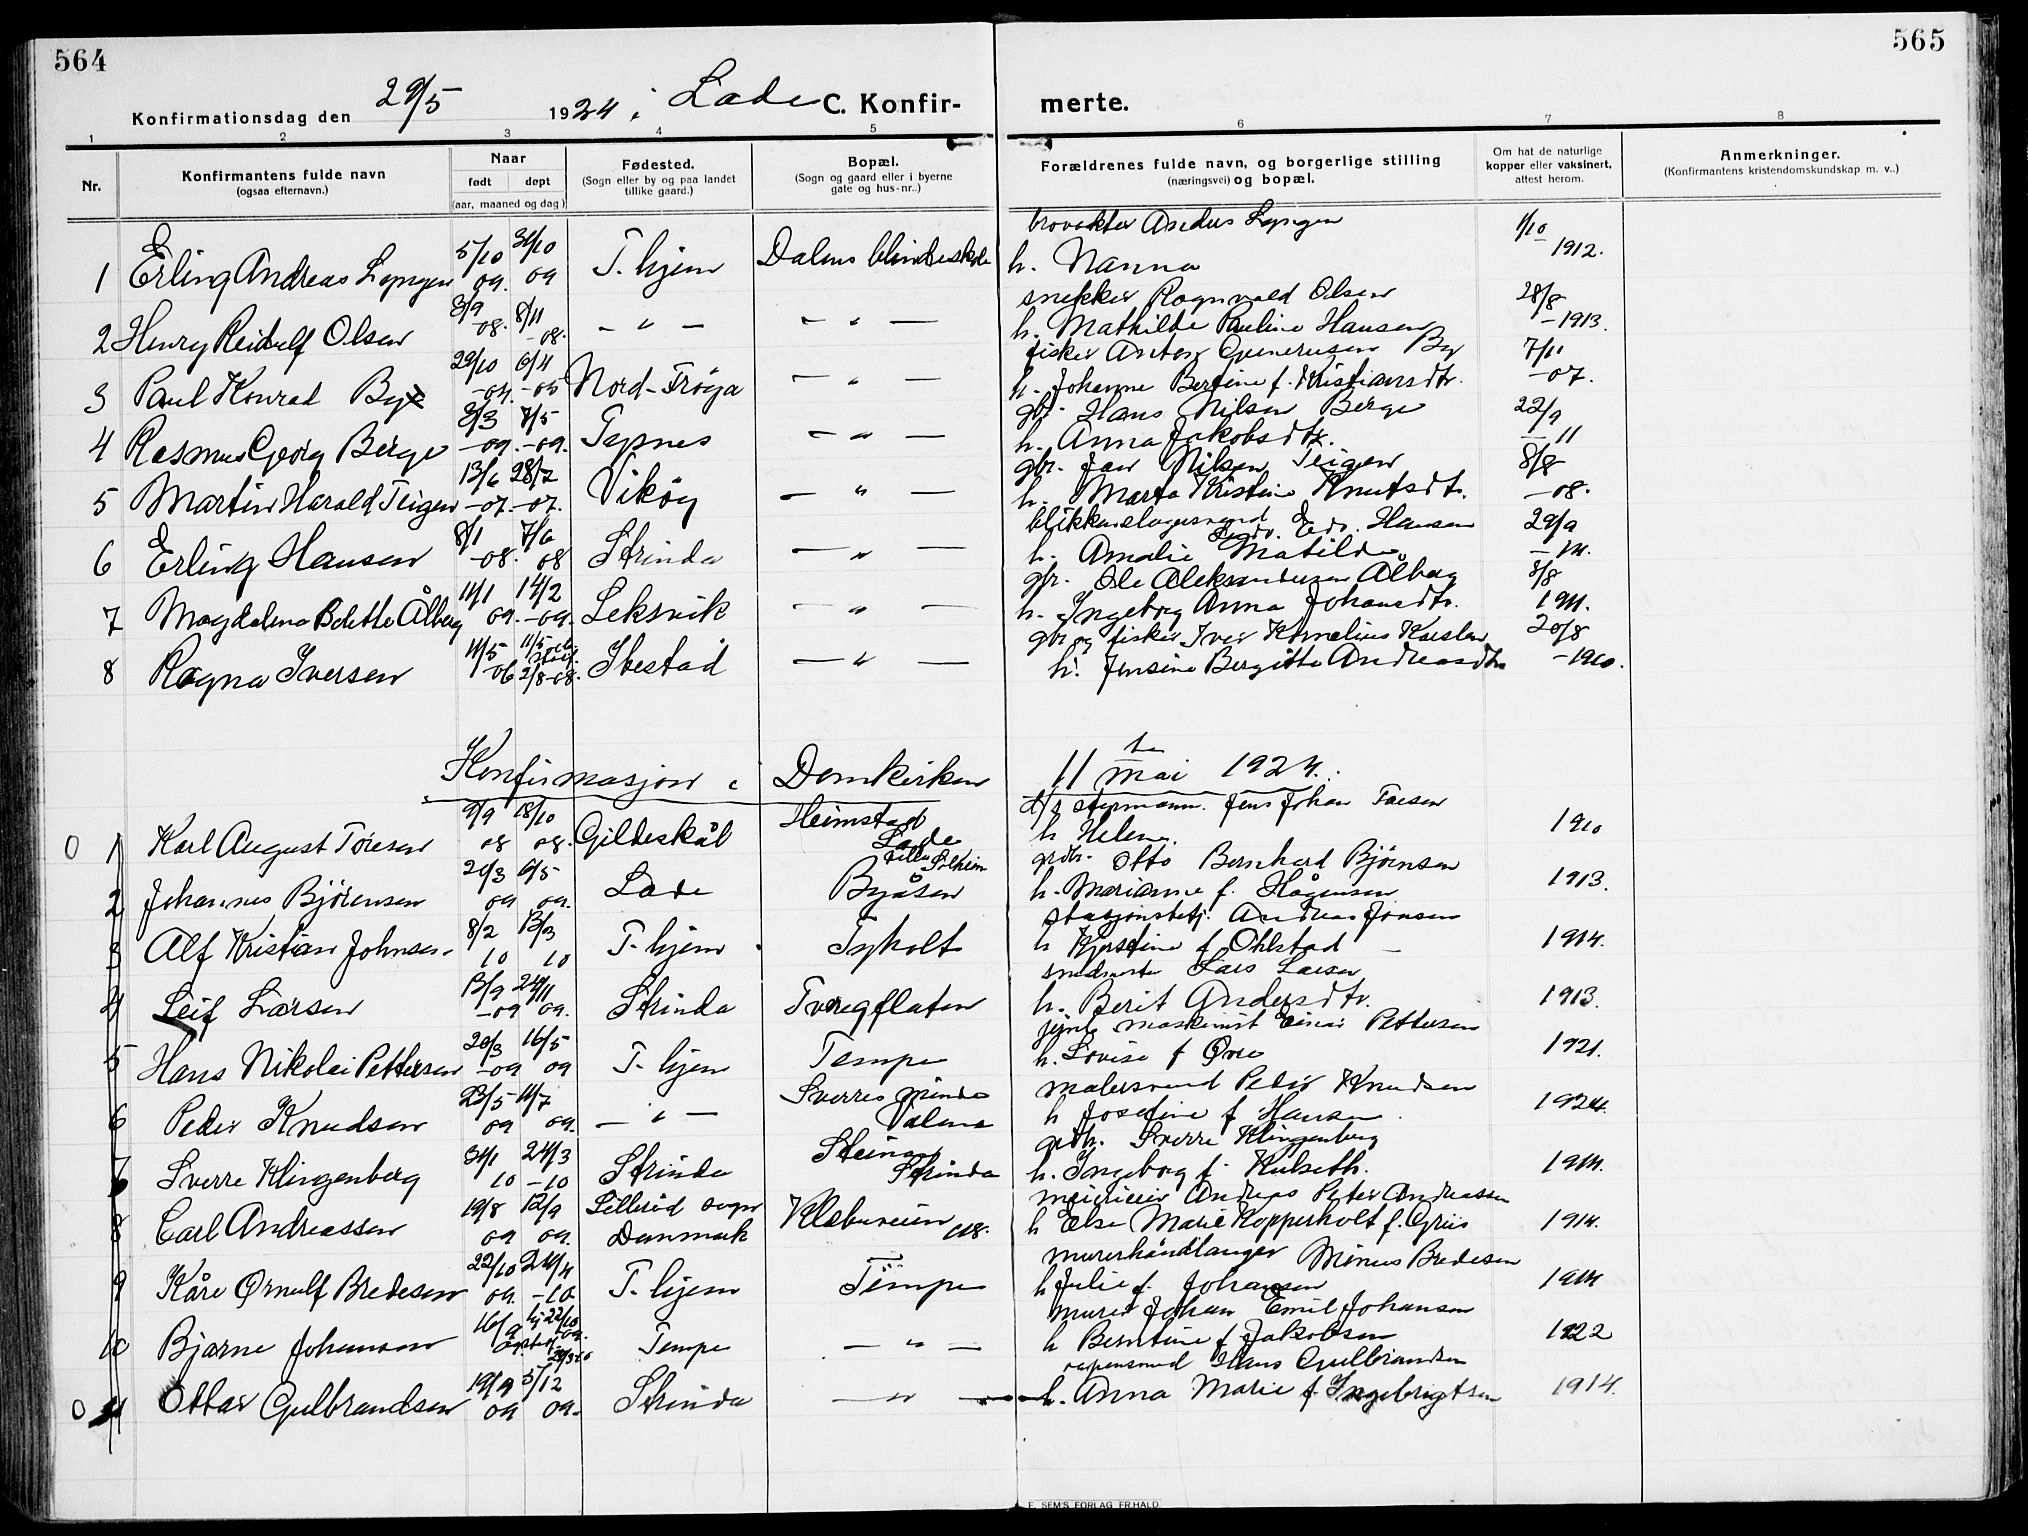 564
565
Konfirmationsdag den 29/5 1924 i Lade C. Konfir-
merte.
1 2 3 4 5 6 7 8
Nr.
Konfirmantens fulde navn
(ogsaa efternavn.)
Naar
født døpt
(aar, maaned og dag)
Fødested.
(Sogn eller by og paa landet
tillike gaard.)
Bopæl.
(Sogn og gaard eller i byerne
gate og hus-nr..)
Forældrenes fulde navn, og borgerlige stilling
(næringsvei) og bopæl.
Om hat de naturlige
kopper eller vaksinert,
attest herom.
Anmerkninger.
(Konfirmantens kristendomskundskap m. v..)
Anders Lyngen 1/10
1 Erling Andreas Lyngen 5/10 09. 31/10 09 T. hjem Dalens blindeskole h. Nanna 1912.
snekker Ragnvald Olsen 28/8
2 Henry Reidulf Olsen 3/9 -08. 8/11 -08. — " — — " — h. Mathilde Pauline Hansen -1913.
fisker Anton Gunerusen By 7/11
3 Paul Konrad By 29/10 Nord-Frøya — " — h. Johanne Bertine f. Kristiansdtr. -07.
gbr. Hans Nilsen Berge 22/9
4 Rasmus Georg Berge 3/3 -09. 7/5 -09. — " — h. Anna Jakobsdtr. -11
gbr. Jan Nilsen Teigen 8/8
5 Martin Harald Teigen 13/6 -07. 28/7 -07. Vikøy — " — h. Marta Kristine Knutsdtr. -08.
blikkenslagersvend Edv. Hansen 29/9
6 Erling Hansen 8/1 -08. 7/6 08 Strinda — " — h. Amalie Matilde
gbr. Ole Aleksandersen Ålberg 8/8
7 Magdalena Bolette Ålberg 11/1 09. 14/2 -09. Leksvik — " — h. Ingeborg Anna Johansdtr. 1911.
gbr. og fisker Iver Kornelius Karlsen 20/8
8 Ragna Iversen 11/5 -06 11/5 2/8-08. Ibestad — " — h. Jensine Bergitte Andreasdtr. -1910.
Konfirmasjon i Domkirken 11te mai 1924.
styrmann Jens Johan Tøresen
0 1 Karl August Tøresen 9/9 08 18/10 08. Gildeskål Heimstad Lade h Helene 1910
grdbr. Otto Bernhard Bjørnsen
2 Johannes Bjørnsen 21/3 09 6/5 09. Lade Solheim Byåsen h. Marianne f. Hågensen 1913.
stasjonsbetj. Andreas Jonsen
3 Alf Kristian Johnsen 8/2 10 13/3 10 T. hjem Tyholt h Kjerstine f. Ohlstad 1914.
Lars Larsen
4 Leif Larsen 13/9 -09 24/11 09. Strinda Tvereggflaten h. Berit Andersdtr. 1913.
maskinist Einar Pettersen
5 Hans Nikolai Pettersen 20/3 -09 16/5 09 T. hjem Tempe h. Lovise f Øree 1921.
malersvend Peder Knudsen
6 Peder Knudsen 23/5 09 11/7 09. — " — Sverres minde Valene h Josefine f Hansen 1924.
grdbr. Sverre Klingenberg
7 Sverre Klingenberg 31/1 10 24/3 -10 Strinda Steinan Strinda h. Ingeborg f. Hulseth. 1914.
meierieier Andreas Peter Andreassen
8 Carl Andreassen 19/8 09 12/9 09. Lillerød sogn Danmark Klæbuveien 118. h Else Marie Kopperholt f. Griis 1914.
murerhåndlanger Minus Bredesen
9 Kåre Ørnulf Bredesen 22/10 09. 24/4 -10. T. hjem Tempe h Julie f. Johansen 1914
murer Johan Emil Johansen
10 Bjarne Johansen 16/9 Tempe — " — h Berntine f Jakobsen 1922
Hans Gulbrandsen
0 11 Ottar Gulbrandsen 19/9 09 5/12 09. Strinda — " — h. Anna Marie f. Ingebrigtsen 1914.
E. SEM'S FORLAG FR.HALD